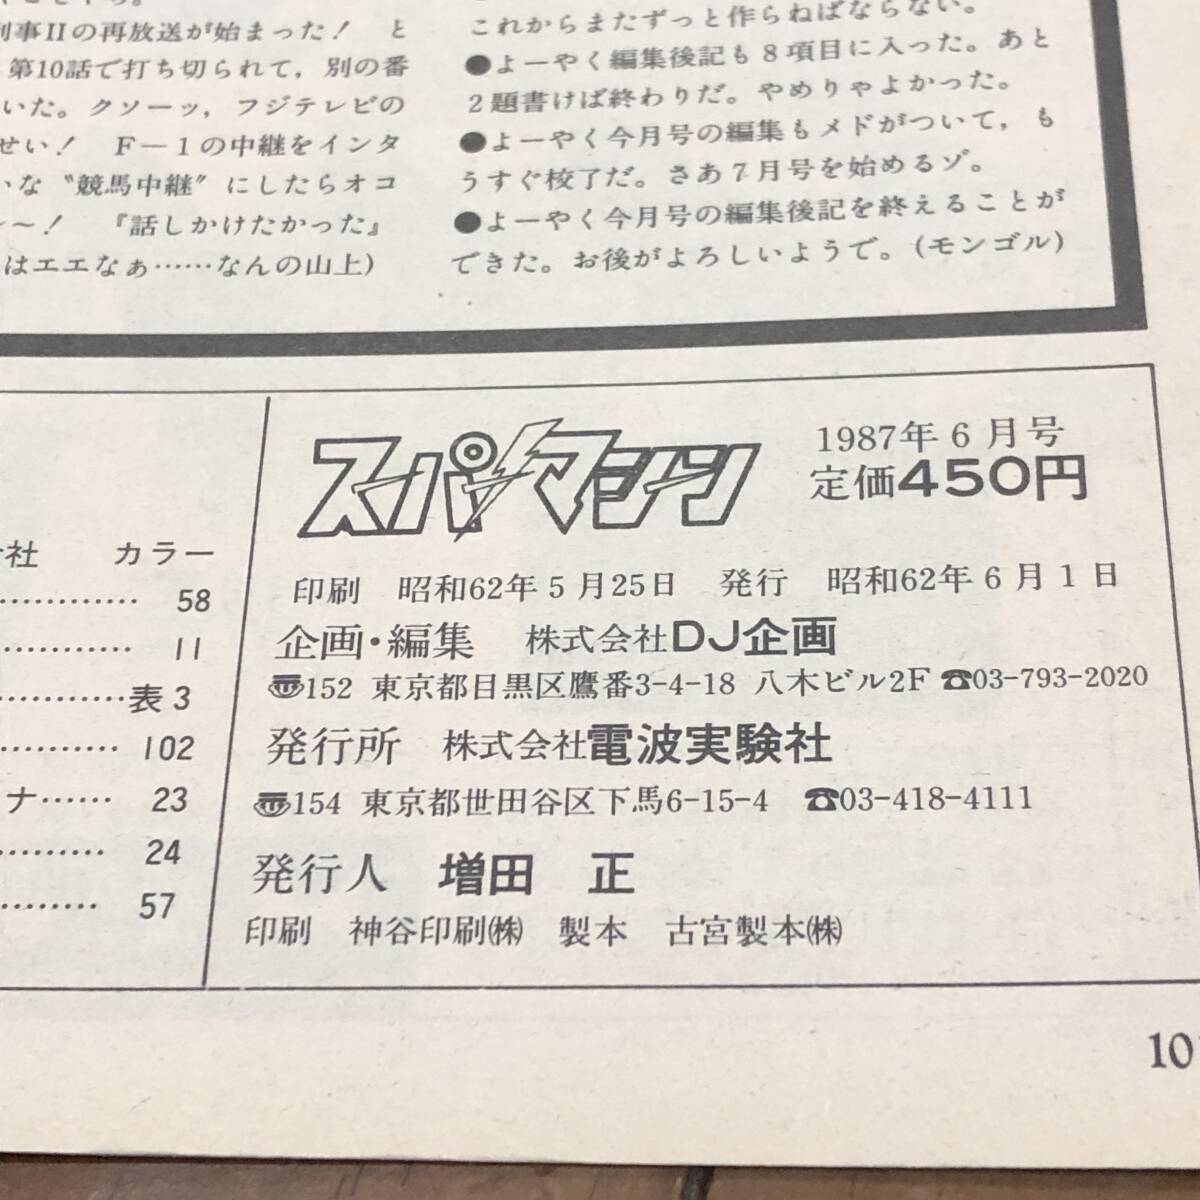 刑事IIの再放送が始まった！　と
第10話で打ち切られて，別の番
いた。クソーッ，フジテレビの
せい！　F－1の中継をインタ
いな〝競馬中継〟にしたらオコ
～～！　『話しかけたかった』
はエエなぁ……なんの山上）
これからまたずっと作らねばならない。
●よーやく編集後記も8項目に入った。あと
2題書けば終わりだ。やめりゃよかった。
●よーやく今月号の編集もメドがついて，も
うすぐ校了だ。さあ7月号を始めるゾ。
●よーやく今月号の編集後記を終えることが
できた。お後がよろしいようで。（モンゴル）
社　カラー
………… 58
………… 11
…………表3
………… 102
ナ…… 23
………… 24
………… 57
スーパーマシン
1987年6月号
定価450円
印刷　昭和62年5月25日　発行　昭和62年6月1日
企画・編集　株式会社DJ企画
〠152 東京都目黒区鷹番3-4-18 八木ビル2F ☎03-793-2020
発行所　株式会社電波実験社
〠154 東京都世田谷区下馬6-15-4　☎03-418-4111
発行人　増田　正
印刷　神谷印刷㈱　製本　古宮製本㈱